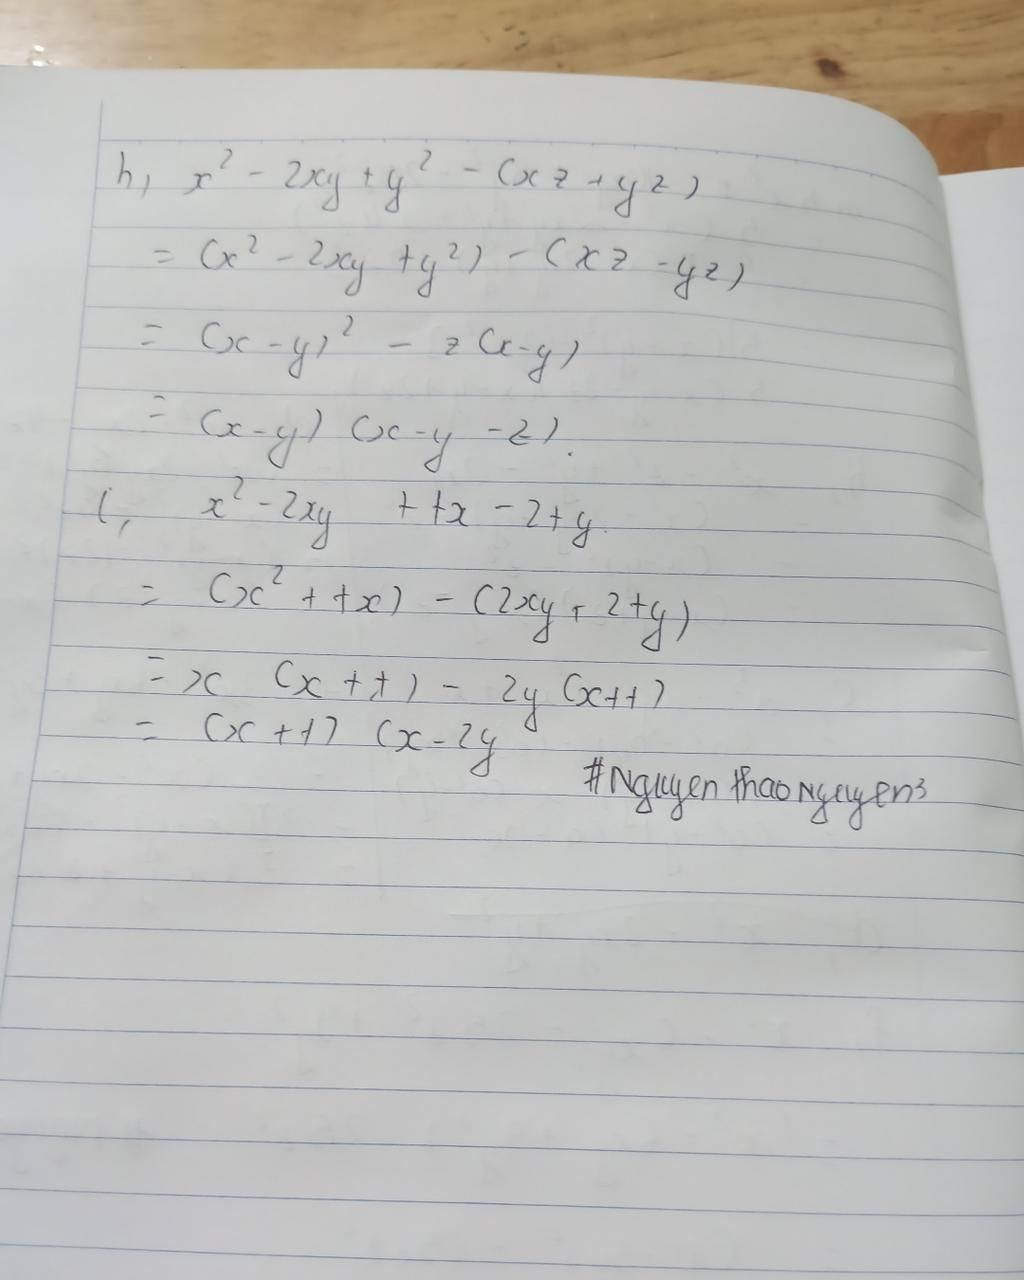 h, x² - 2xy + y² - (xz + yz)
= (x² - 2xy + y²) - (xz - yz)
= (x - y)² - z (x - y)
= (x - y) (x - y - z).
i, x² - 2xy + tx - 2ty.
= (x² + tx) - (2xy + 2ty)
= x (x + t) - 2y (x + t)
= (x + t) (x - 2y
#Nguyen thao Nguyen3